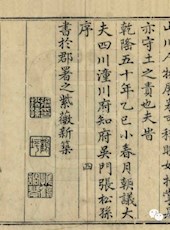 山川人物
亦守土之責也夫旹
乾隆五十年乙巳小春月朝議大
夫四川潼川府知府吳門張松孫
序 四
書於郡署之紫薇新築